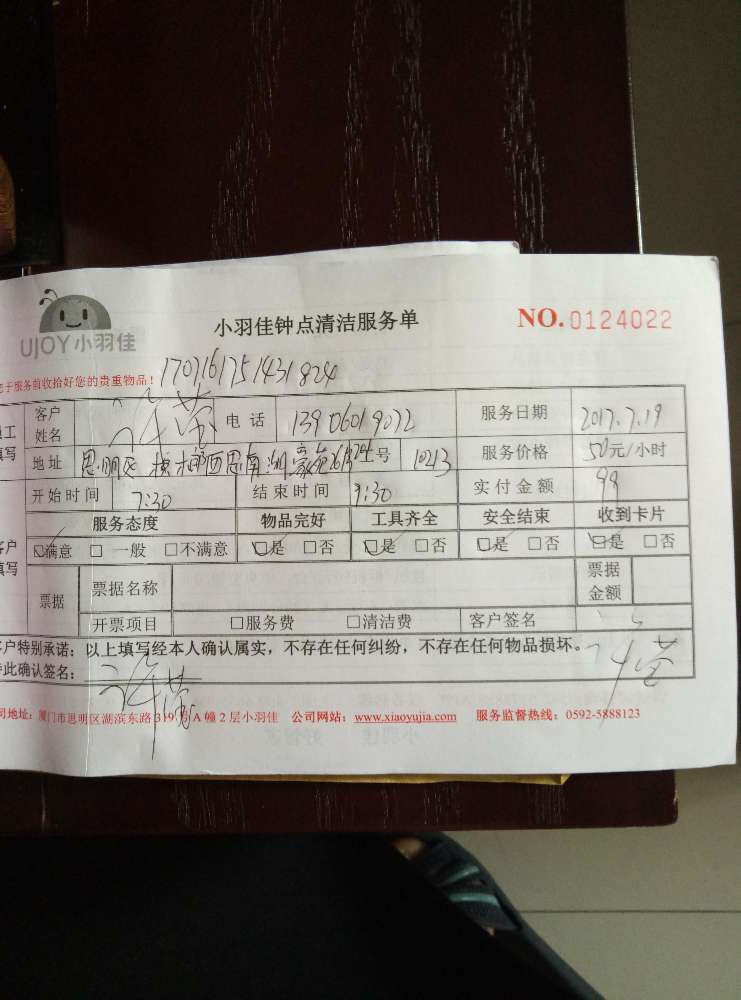 UJOY小羽佳
小羽佳钟点清洁服务单
NO.0124022
于服务前收拾好您的贵重物品！
客户姓名 电话 服务日期 2017.7.19
填写 地址 思明区 号 服务价格 50元/小时
开始时间 7:30 结束时间 9:30 实付金额 98
服务态度 物品完好 工具齐全 安全结束 收到卡片
☑满意 □一般 □不满意 ☑是 □否 ☑是 □否 ☑是 □否 ☑是 □否
票据 票据名称 票据金额
开票项目 □服务费 □清洁费 客户签名
户特别承诺：以上填写经本人确认属实，不存在任何纠纷，不存在任何物品损坏。
此确认签名：
司地址：厦门市思明区湖滨东路319号A幢2层小羽佳 公司网站：www.xiaoyujia.com 服务监督热线：0592-5888123